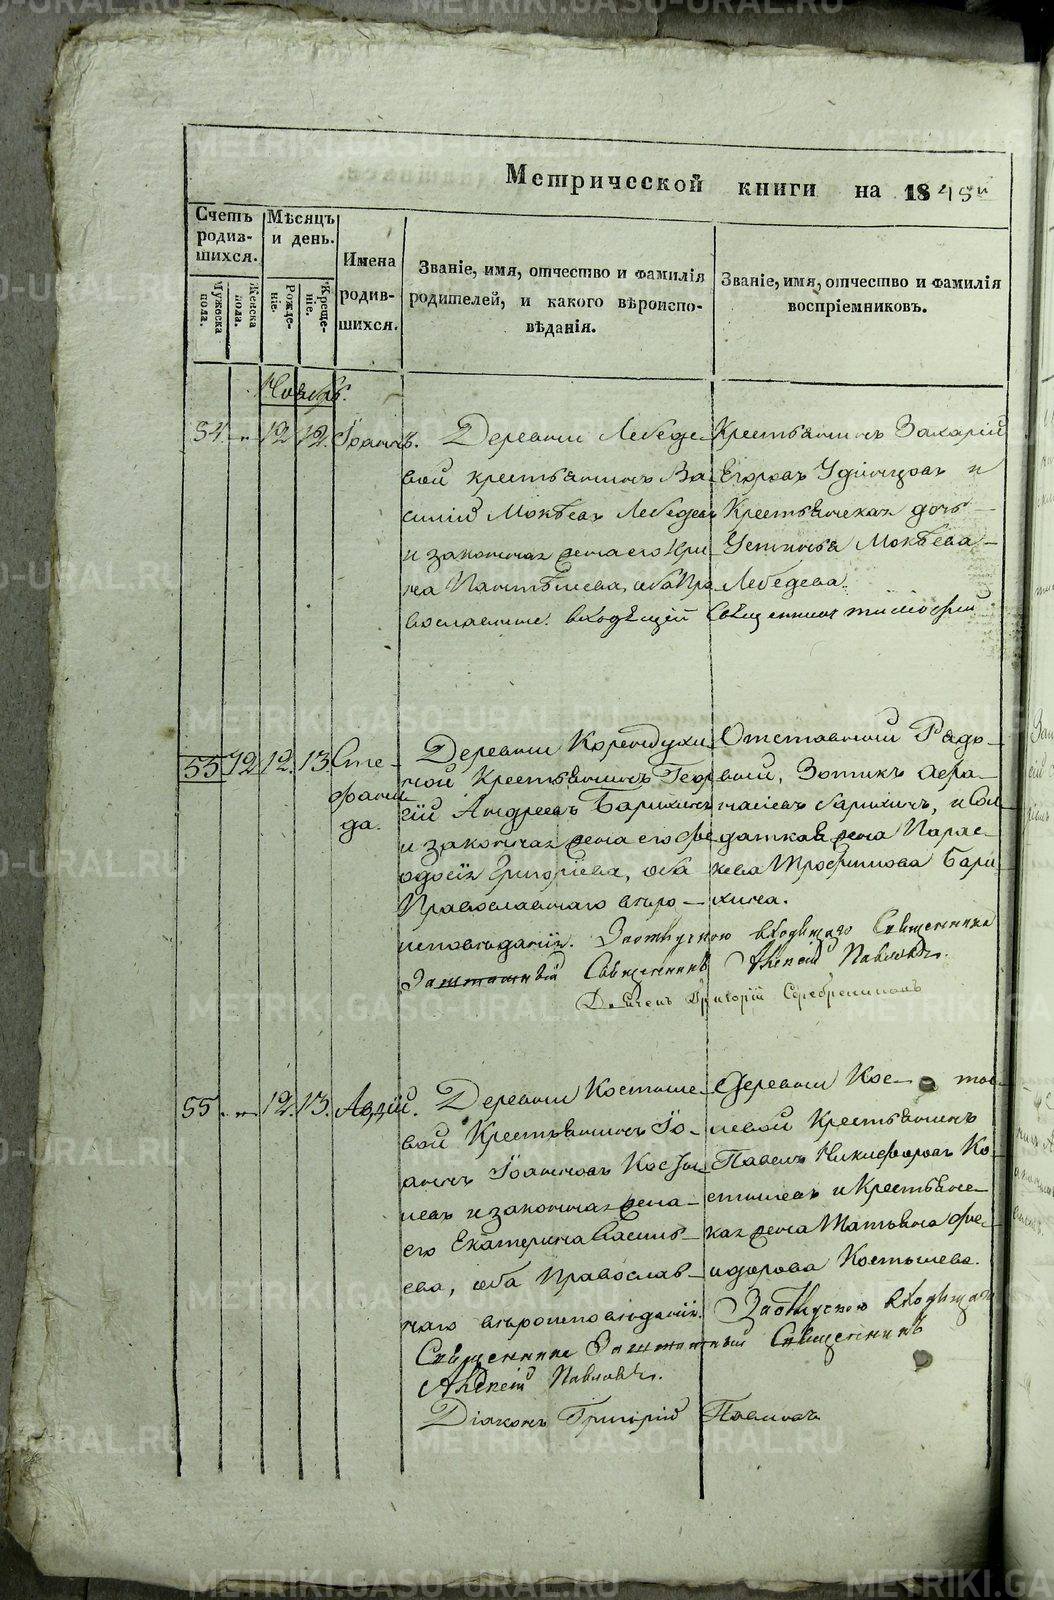 METRIKI.GASO-URAL.RU
Метрической книги на 1845й
Счетъ родив-шихся.
Мѣсяцъ и день.
Имена родив-шихся.
Званіе, имя, отчество и фамилія родителей, и какого вѣроиспо-вѣданія.
Званіе, имя, отчество и фамилія воспріемниковъ.
Мужеска пола.
Женска пола.
Рожде-ніе.
Креще-ніе.
Ноябрь.
54. „ 12 12. Іоаннъ.
Деревни Лебеде-
вой крестьянинъ Ва-
силій Мокѣевъ Лебедевъ
и законная жена его Ири-
на Пантѣлеева, оба Пра-
вославные. входящій
Крестьянинъ Захарій
Егоровъ Удинцовъ и
Крестьянская дочь
Устинья Мокѣева
Лебедева.
Священникъ
55 42 12. 13 Сте-
фани-
да.
Деревни
ной Крестьянинъ Геор-
гій Андреевъ Барихинъ
и законная жена его Фе-
одосія Григоріева, оба
Православнаго вѣро-
исповѣданія.
Отставный Рядо-
вый, Зотикъ Афа-
насіевъ Барихинъ, и Сол-
датская жена Парас-
кева Трофимова Бари-
хина.
За отлускою входящаго Священника
Заштатный Священникъ Алексій Павловъ.
Діаконъ Григорій Серебрениковъ
55. „ 12. 13. Авдій.
Деревни Костыле-
вой Крестьянинъ Іо-
аннъ Іоанновъ Косты-
левъ и законная жена
его Екатерина Василь-
ева, оба Православ-
наго вѣроисповѣданія.
Деревни Кос- ты-
левой Крестьянинъ
Павелъ Никифоровъ Ко-
стылевъ и Крестьянс-
кая жена Татьяна Фе-
одорова Костылева.
За отлускою входящаго
Священника Заштатный Священникъ
Алексій Павловъ.
Діаконъ Григорій Павловъ